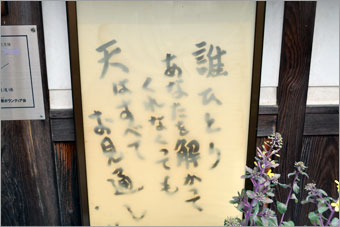 誰ひとり
あなたを解かって
くれなくても
天はすべて
お見通し